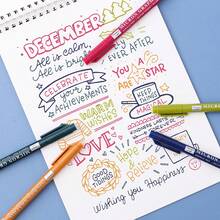 DECEMBER
All is calm,
All is bright
EVER AFTER
CELEBRATE
your
ACHIEVEMENTS
YOU ARE
A STAR
WARM
WISHES
KEEP
THINGS
MAGICAL
LOVE
GOOD
TIDINGS
Hope
Believe
Wishing you Happiness